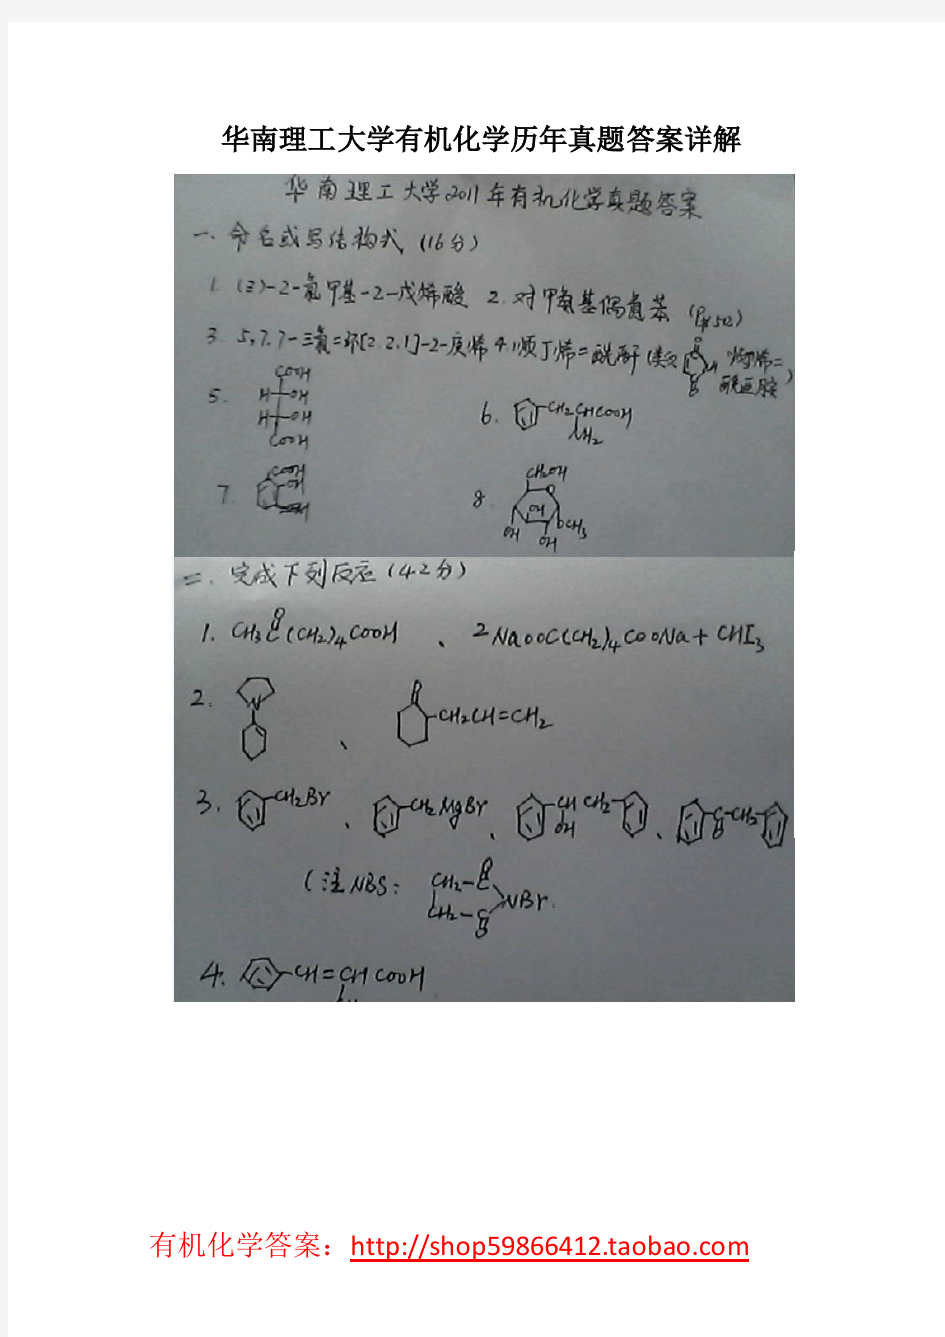 华南理工大学有机化学历年真题答案详解
华南理工大学2011年有机化学真题答案
一、命名或写结构式(16分)
1. (Z)-2-氯甲基-2-戊烯酸 2. 对甲氨基偶氮苯
3. 5,7,7-三氯二环[2.2.1]-2-庚烯 4. 顺丁烯二酰酐
顺丁烯二
酰亚胺)
5. COOH
H OH
H OH
COOH
6. CH2CHCOOH
NH2
7. COOH
OH
8. CH2OH
O
OH
OH OCH3
OH
二、完成下列反应(42分)
1. CH3C(CH2)4COOH 、 2NaOOC(CH2)4COONa + CHI3
O
2. N 、 O CH2CH=CH2
3. CH2Br 、 CH2MgBr 、 CH CH2 、 C-CH2
OH O
(注NBS: CH2-C O
NBr.
CH2-C O
4. CH=CHCOOH
有机化学答案:http://shop59866412.taobao.com